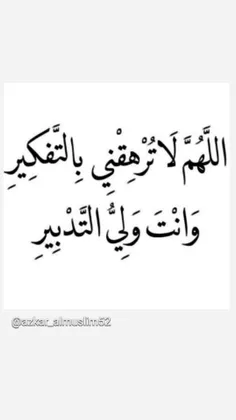 اللَّهُمَّ لَا تُرْهِقْنِي بِالتَّفكِيرِ
وَانْتَ وَلِيُّ التَّدْبِيرِ
@azkar_almuslim52